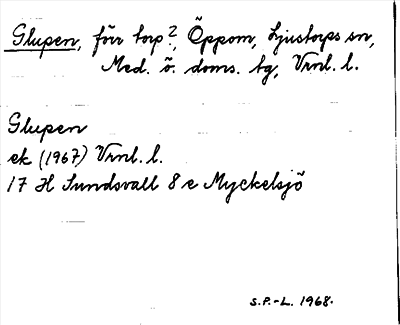 Glupen, förr torp?, Öppom, Ljustorps sn,
Med. ö. doms. tg, Vrnl. l.
Glupen
ek (1967) Vrnl. l.
17 H Sundsvall 8 e Myckelsjö
S.P.-L. 1968.